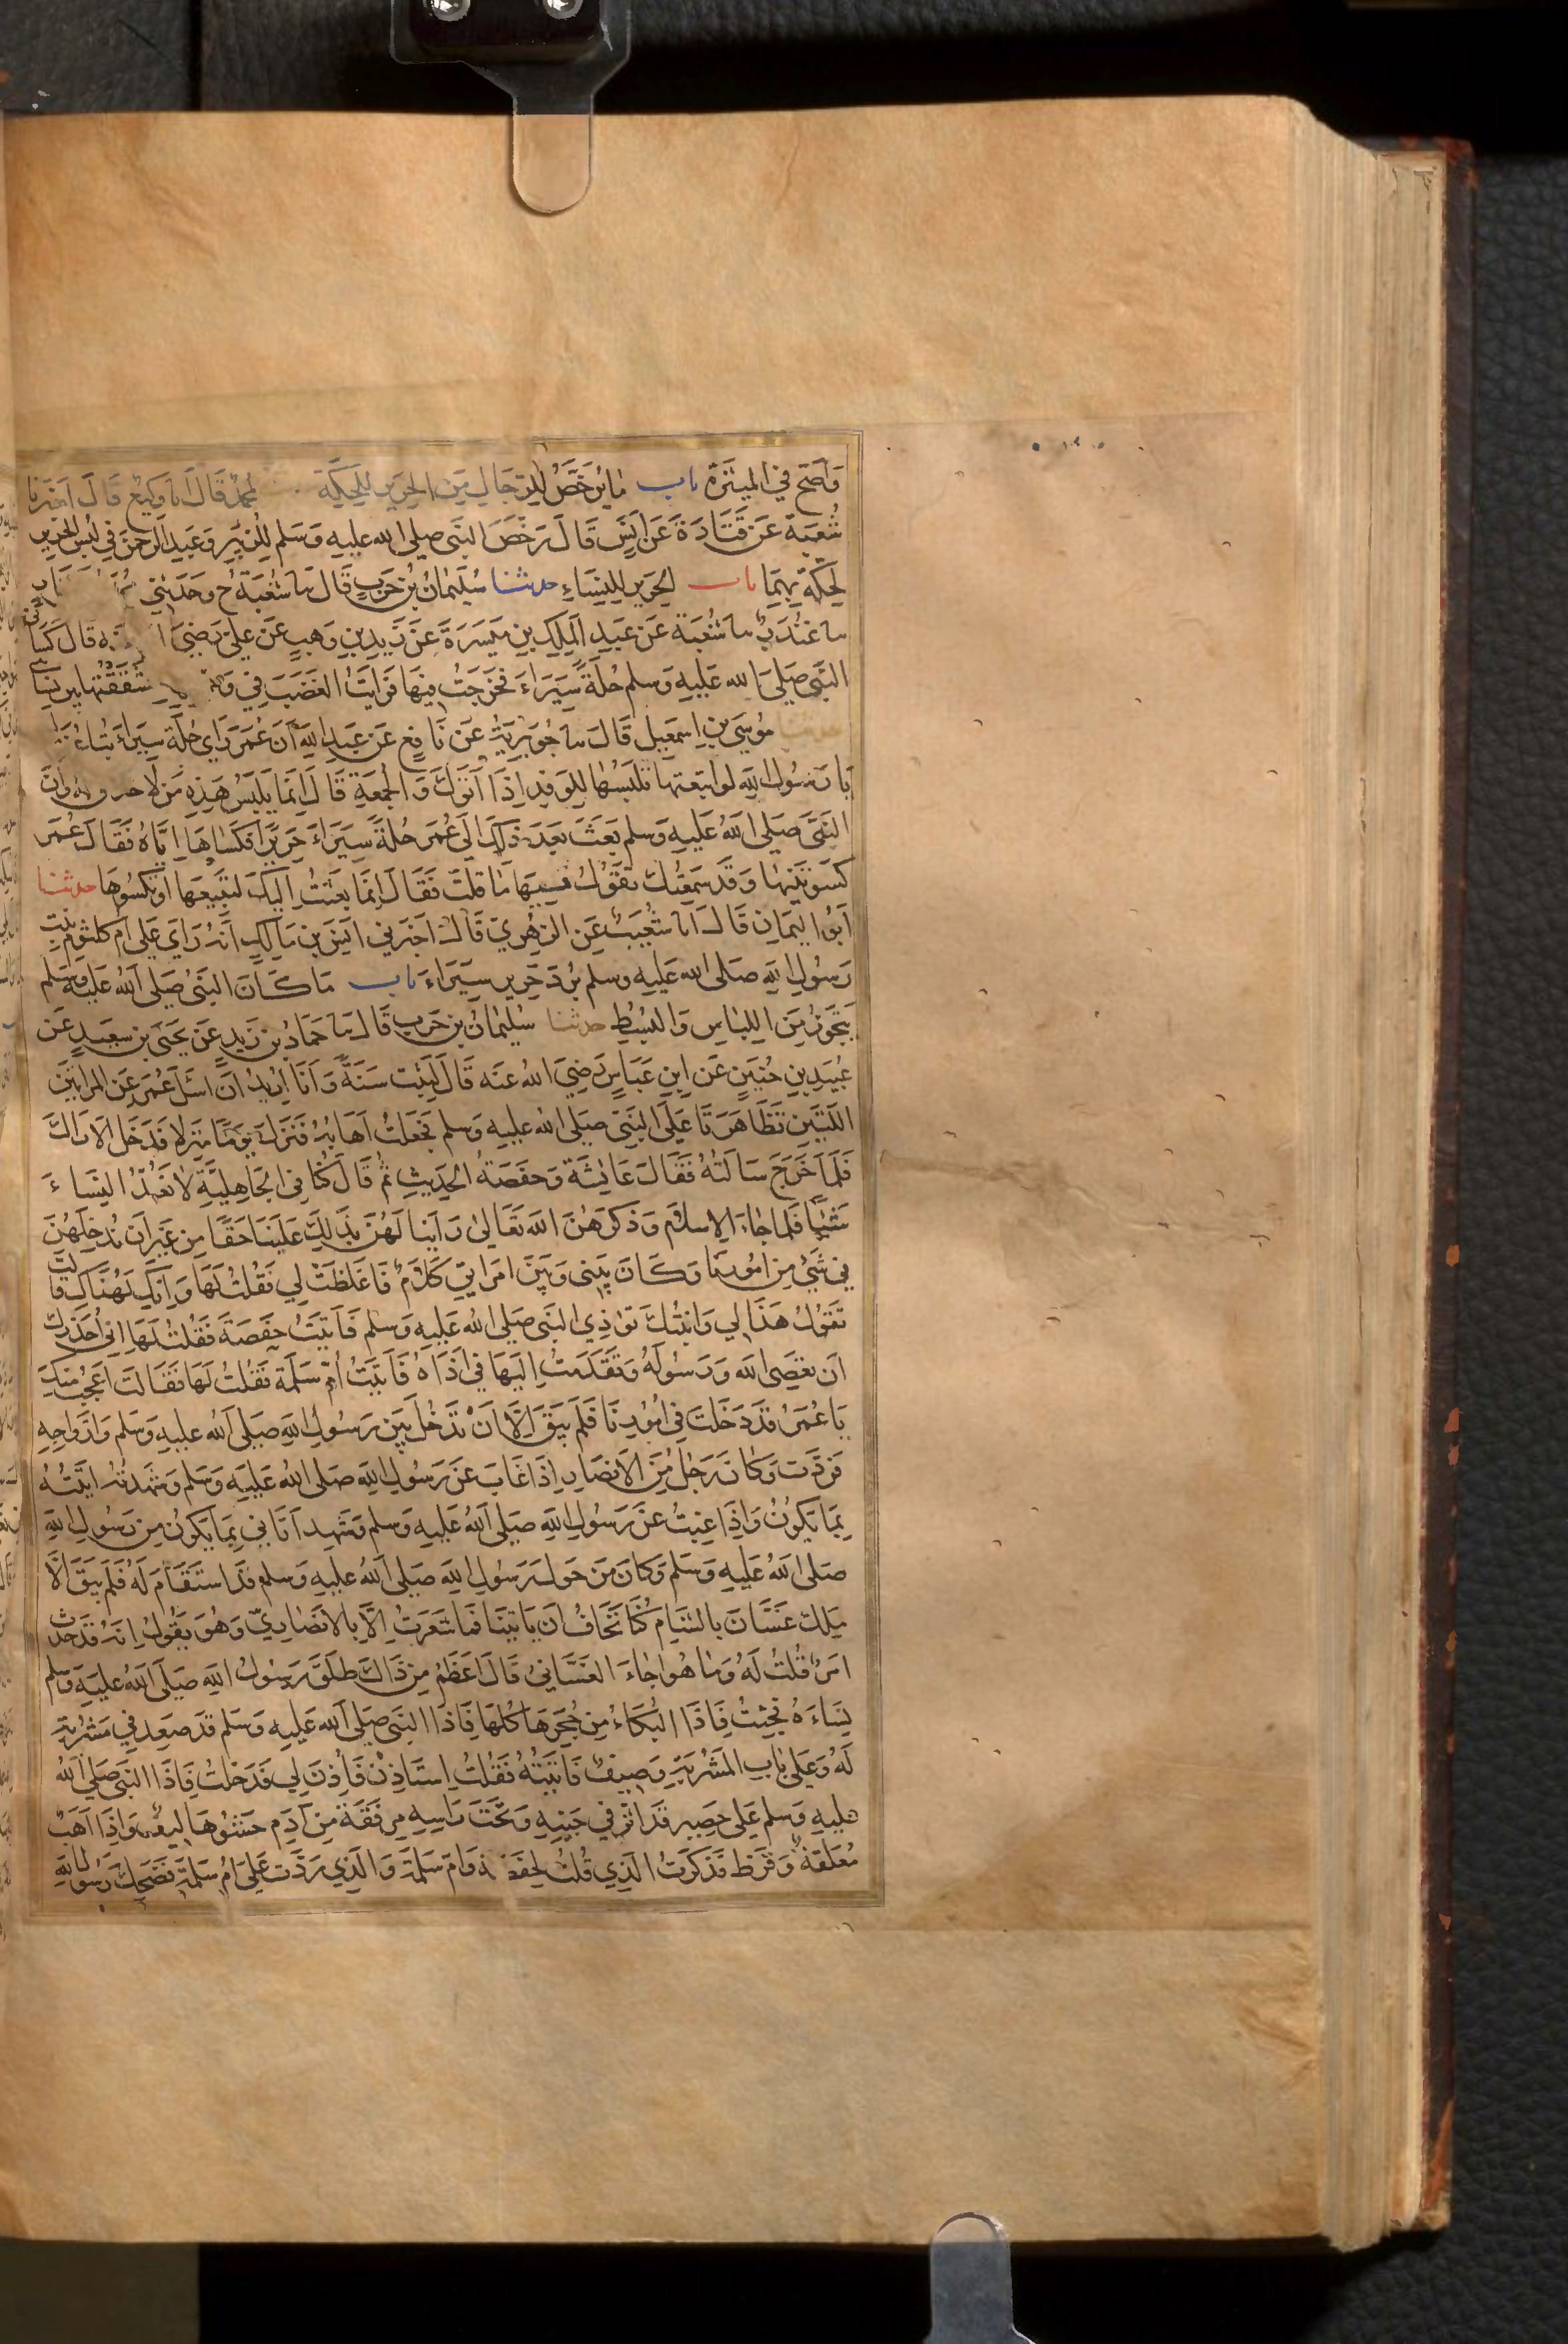 وَاَصَحّ في الميثَرَةِ باب مَا يُرَخَّصُ لِلرِّجَالِ مِنَ الحَرِيرِ لِلحِكَّةِ محمد قَالَ انا وَكِيعٌ قَالَ اَخبَرَنا
شُعبَة عَن قَتَادَةَ عَن اَنَسٍ قَالَ رَخَّصَ النَّبي صلى الله عليه وَسَلم لِلزُّبَيرِ وَعَبدِ الرَّحمَنِ في لُبسِ الحَرِيرِ
لِحِكَّةٍ بِهِمَا باب الحَرِيرِ لِلنِّسَاءِ حدثنا سُلَيمَانُ بنُ حَربٍ قَالَ نا شُعبَةُ ح وَحَدثني
نا غُندَرٌ نا شُعبَة عَن عَبدِ المَلِكِ بنِ مَيسَرَةَ عَن زَيدِ بنِ وَهبٍ عَن عَلِيّ رَضِيَ قَالَ كَسَاني
النَّبي صَلى الله عَلَيهِ وَسلم حُلَةً سِيَرَاءَ فَخَرَجتُ فِيهَا فَرَايتُ الغَضَبَ فِي فَشَقَقتُهَا بَينَ نِسَائي
مُوسَى بن اِسمَعِيل قَالَ نا جُوَيرِيَةُ عَن نَافِعٍ عَن عَبدِ اللهِ أَن عُمَرَ رَأى حُلَّةَ سِيَرَاءَ تُبَاعُ
يَا رَسُولَ اللهِ لو ابتَعتهَا تَلبَسُهَا لِلوَفدِ اِذَا اَتَوكَ وَالجُمعَةِ قَالَ اِنَّمَا يَلبَسُ هَذِهِ مَن لا خلاق له وَاَنَّ
النَّبيَّ صَلى اللهُ عَلَيهِ وَسلم بَعَثَ بَعدَ ذَلِكَ اِلَى عُمَرَ حُلةً سِيَرَاءَ حَرِيرًا فَكَسَاهَا اِيَّاهُ فَقَالَ عُمَر
كَسَوتَنِيهَا وَقَد سَمِعتُكَ تقُولُ فِيهَا مَا قُلتَ فَقَالَ اِنَّمَا بَعَثتُ اِلَيكَ لِتَبِيعَهَا اَو تَكسُوهَا حدثنا
اَبُو اليَمَانِ قَالَ انا شُعَيبٌ عَنِ الزُّهرِيّ قَالَ اخبَرَني اَنَس بن مَالِكٍ اَنَّه رَاَى عَلى ام كلثوم بِنتِ
رَسُولِ اللهِ صَلى الله عَلَيهِ وسلم بُردَ حَرِير سِيَرَاءَ باب مَا كَانَ النَّبيُّ صَلى اللهُ عَلَيهِ وسَلم
يَتَجَوَّزُ مِنَ اللِّبَاسِ وَالبُسُطِ حدثنا سُلَيمَانُ بن حَربٍ قَالَ نا حَمَّادُ بن زَيدٍ عَن يَحيَى بنِ سَعِيدٍ عَن
عُبَيدِ بنِ حُنَينٍ عَنِ ابنِ عَبَّاسٍ رَضِيَ اللهُ عَنه قَالَ لَبِثت سَنَةً وَاَنَا اُرِيدُ اَن اسئَلَ عُمَرَ عَنِ المَراتَينِ
اللَّتَينِ تَظَاهَرَتَا عَلَى النَّبيِّ صَلى اللهُ عَلَيهِ وَسلم فَجَعَلتُ اَهَابُهُ فَنَزَلَ يَومًا مَنزِلا فَدَخَلَ الاَرَاكَ
فَلَمَّا خَرَجَ سَاَلتُهُ فَقَالَ عَائِشَة وَحَفصَةُ الحَدِيثِ ثم قَالَ كُنَّا في الجَاهِلِيَّةِ لا نَعُدُّ النِّسَاءَ
شَيئًا فَلَمَّا جَاءَ الاِسلامُ وَذَكَرَهُنَّ الله تَعَالى رَاَينَا لَهُنَّ بِذَلِكَ عَلَينَا حَقًّا مِن غَيرِ اَن نُدخِلَهُنَّ
فِي شَيءٍ مِن اُمُورِنَا وَكَانَ بَينِي وَبَينَ امرَاتي كَلامٌ فَاَغلَظَت لِي فَقُلتُ لَهَا وَاِنَّكِ لَهُنَاكِ قَالَت
تَقُولُ هَذَا لي وَابنَتُكَ تُوذِي النَّبيَّ صَلى اللهُ عَلَيهِ وَسلم فَاَتَيتُ حَفصَةَ فَقُلتُ لَهَا اِني اُحَذِّرُكِ
اَن تَعصَي الله وَرَسُولَهُ وَتَقَدَّمتُ اِلَيهَا في اَذَاهُ فَاَتَيتُ اُمَّ سَلَمَةَ فَقُلتُ لَهَا فَقَالَت اَعجَبُ مِنكَ
يَا عُمَرُ قَد دَخَلتَ في اُمُورِنَا فَلَم يَبقَ اِلَّا اَن تَدخُلَ بَينَ رَسُولِ اللهِ صَلى الله عليهِ وَسَلم وَاَزوَاجِهِ
فَرَدَّت وَكَانَ رَجُلٌ مِنَ الاَنصَارِ اِذَا غَابَ عَن رَسُولِ اللهِ صَلى اللهُ عَلَيهِ وَسَلم وَشَهِدتُه اَتَيتُهُ
بِمَا يَكُونُ وَاِذَا غِبتُ عَن رَسُولِ اللهِ صَلى اللهُ عَلَيهِ وَسلم وَشَهِد اَتَاني بِمَا يَكُونُ مِن رَسُولِ اللهِ
صَلى اللهُ عَلَيهِ وَسَلم وَكَانَ مَن حَولَ رَسُولِ اللهِ صَلى اللهُ عَلَيهِ وَسَلم قَد استَقَامَ لَهُ فَلَم يَبقَ اِلَّا
مَلِكُ غَسَّانَ بِالشَّامِ كُنَّا نَخَافُ اَن يَاتِيَنَا فَمَا شَعَرتُ اِلَّا بِالاَنصَارِيّ وَهُوَ يَقُولُ اِنَّه قَد حَدَثَ
امرٌ قُلتُ لَهُ وَمَا هُو اَجَاءَ الغَسَّانيُّ قَالَ اَعظَمُ مِن ذَاكَ طَلَّقَ رَسُولُ اللهِ صَلى اللهُ عَلَيهِ وَسلم
نِسَاءَهُ فَجِئتُ فَاِذَا البُكَاءُ مِن حُجَرِهَا كُلِّهَا فَاِذَا النَّبيّ صَلى الله عَلَيهِ وَسلم قَد صَعِدَ فِي مَشرُبَةٍ
لَهُ وَعَلى بَابِ المَشرُبَةِ وَصِيفٌ فَاَتَيتُهُ فَقُلتُ اِستَاذِن فَاُذِنَ لِي فَدَخَلتُ فَاِذَا النَّبيّ صَلى اللهُ
عليهِ وَسلم عَلى حَصِير قَد اثَّرَ في جَنبِهِ وَتَحتَ رَاسِهِ مِرفَقَة مِن اَدَمٍ حَشوُهَا لِيفٌ وَاِذَا اَهَبٌ
مُعَلقَةٌ وَقَرَظ فَذَكَرتُ الَّذِي قُلتُ لِحَفصَةَ وَام سَلَمَةَ وَالَّذِي رَدَّت عَلَيَّ ام سَلَمَة فَضَحِكَ رَسُولُ اللهِ